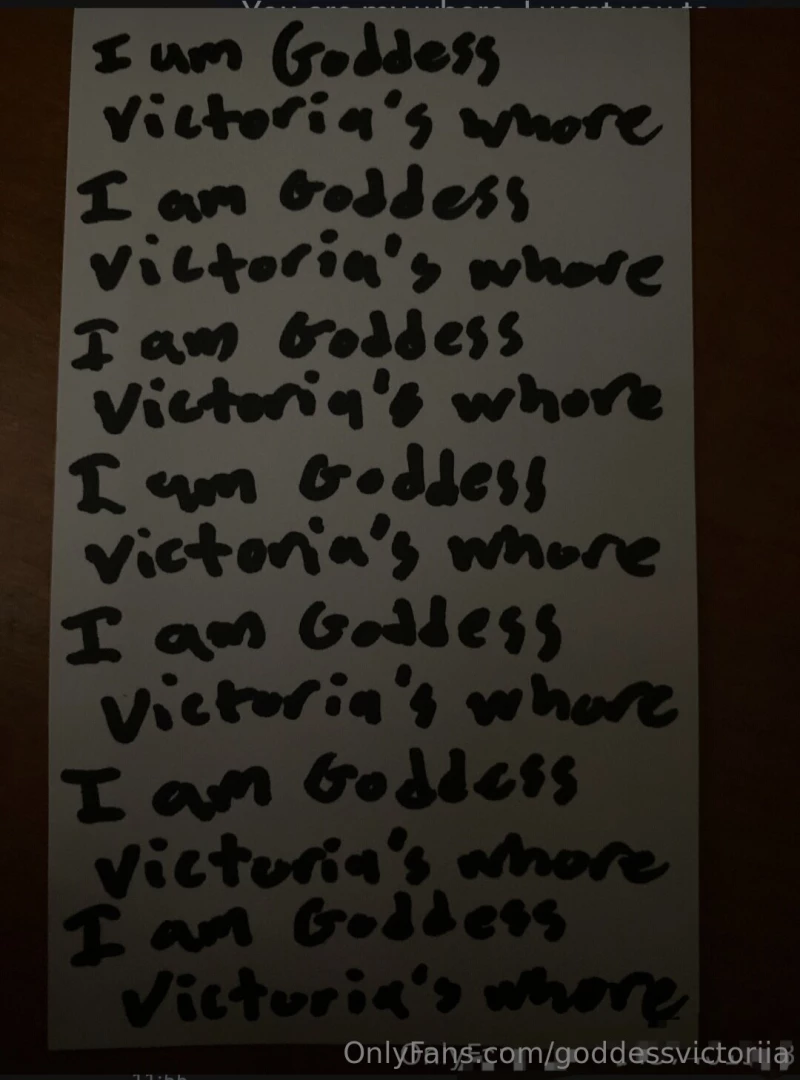 I am Goddess
Victoria's whore
I am Goddess
Victoria's whore
I am Goddess
Victoria's whore
I am Goddess
Victoria's whore
I am Goddess
Victoria's whore
I am Goddess
Victoria's whore
I am Goddess
Victoria's whore
OnlyFans.com/goddessvictoriia